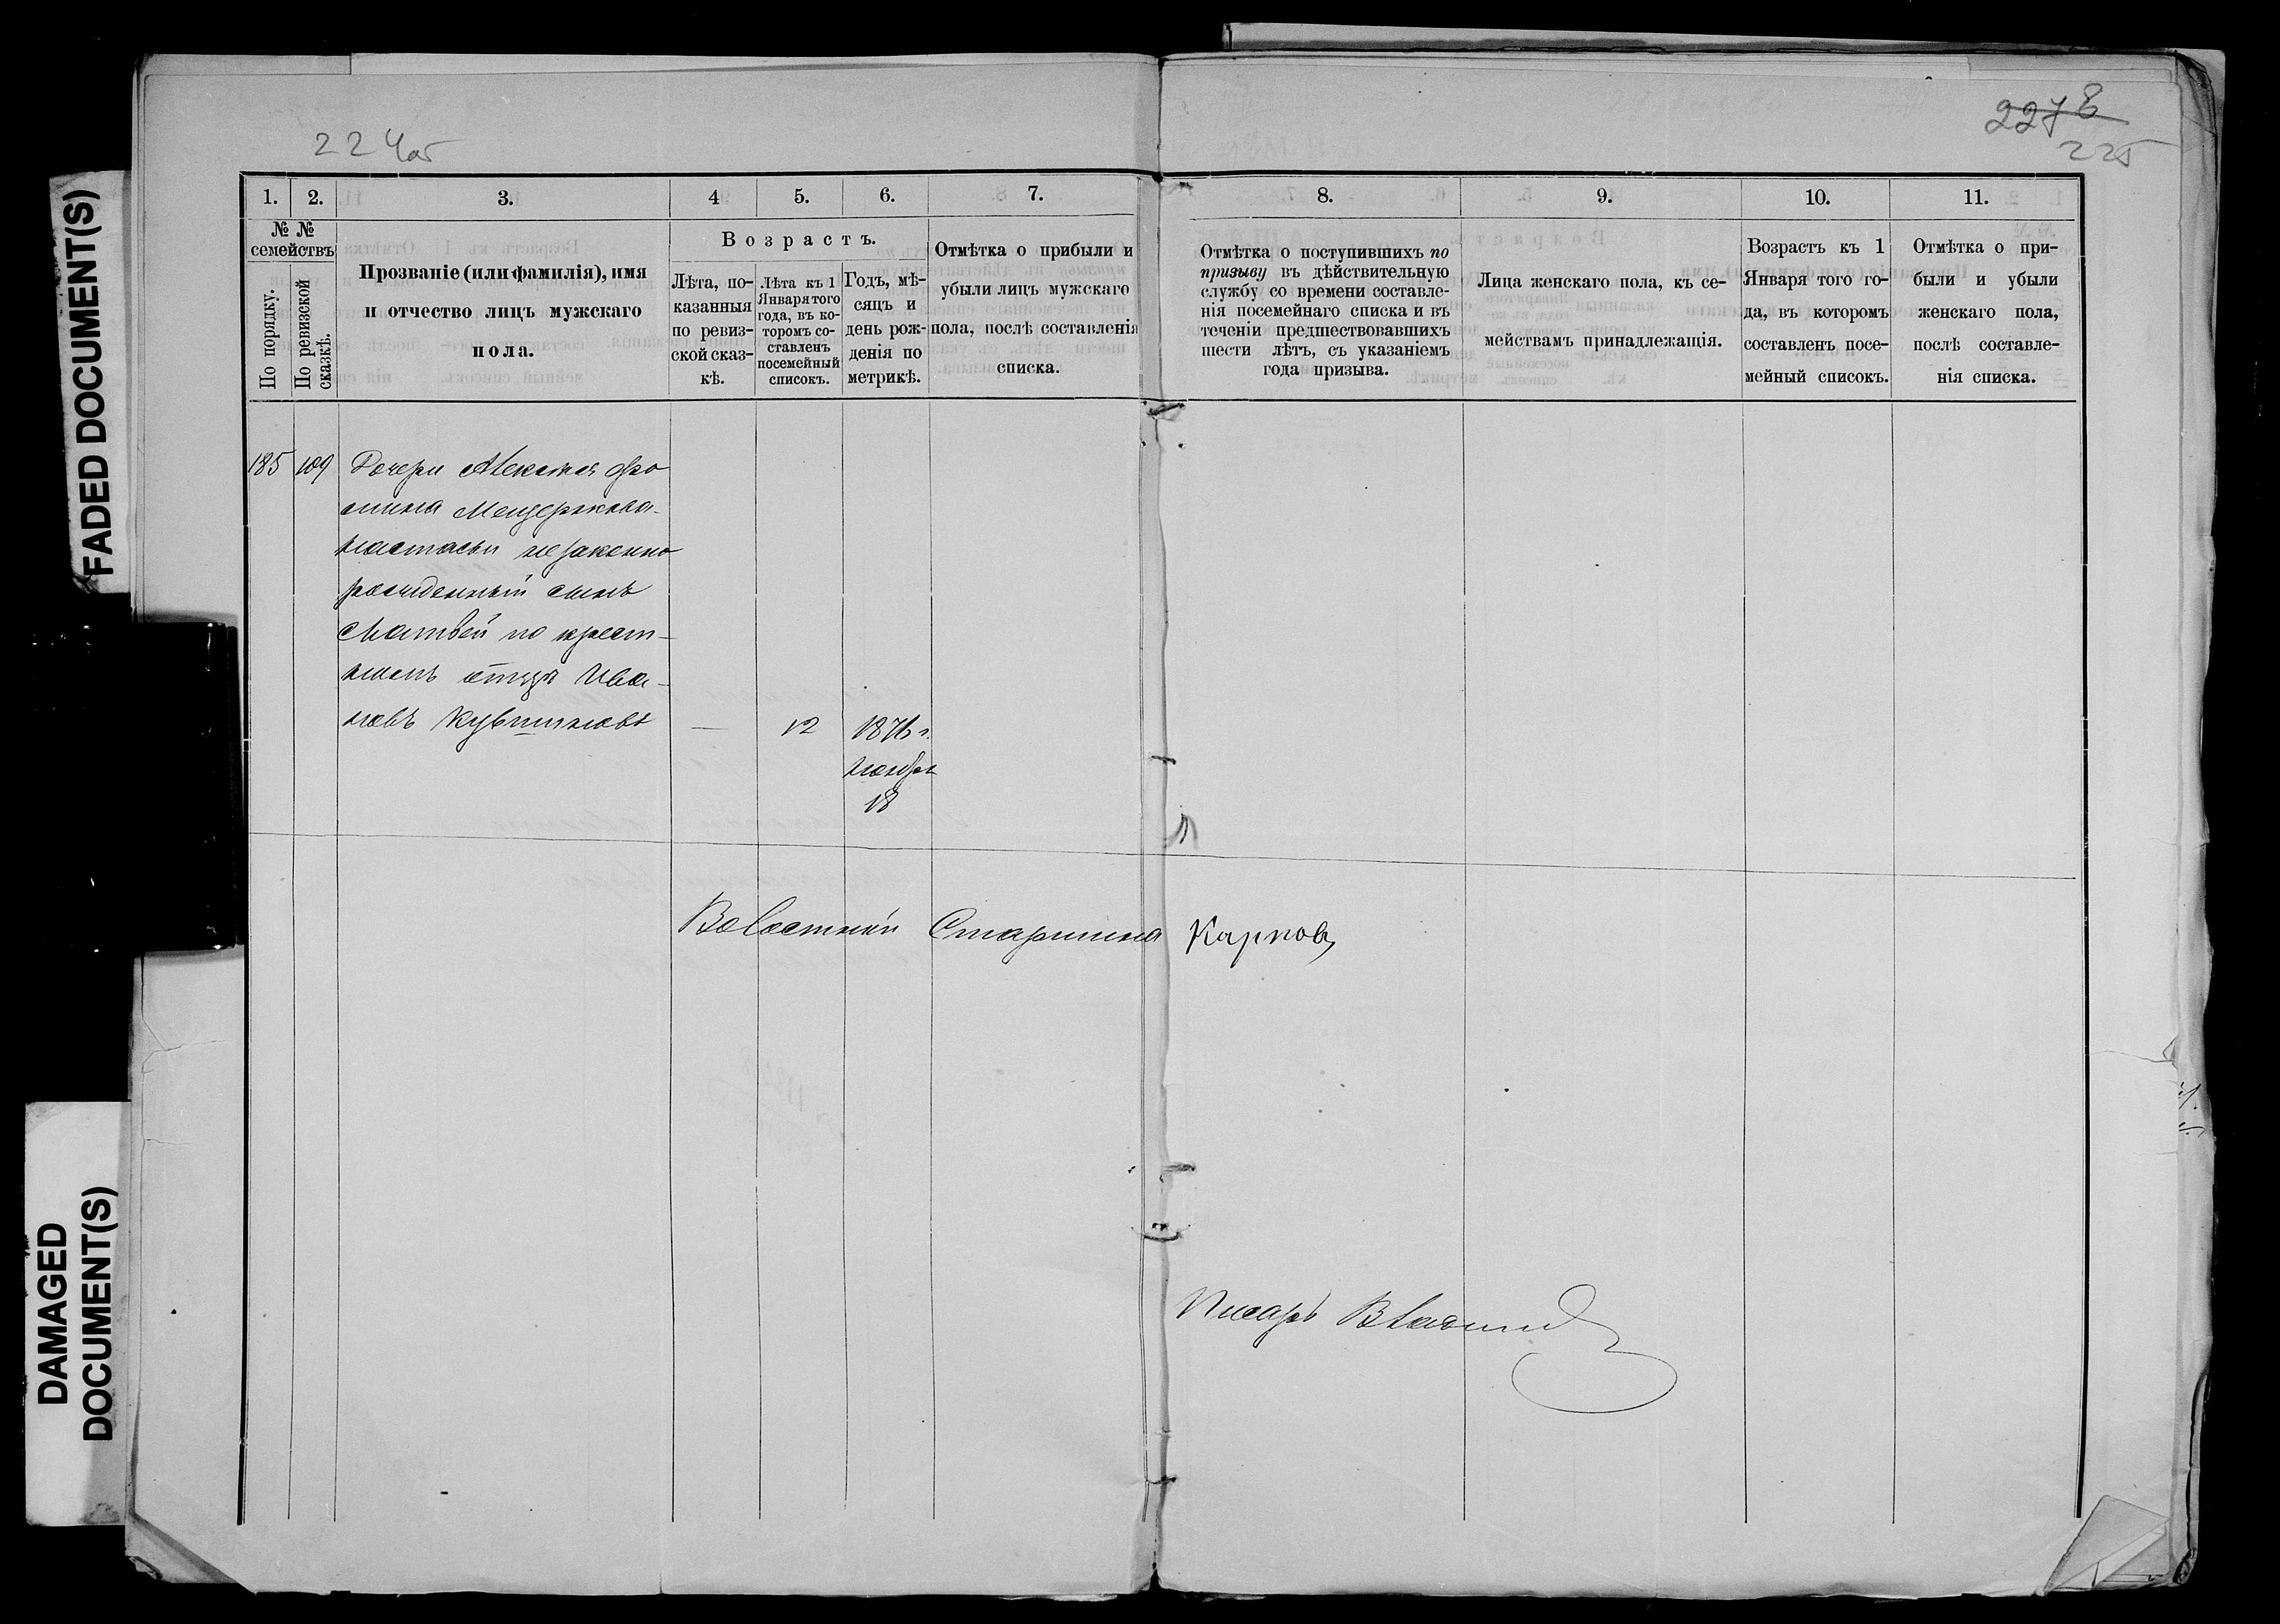 FADED DOCUMENT(S)
DAMAGED
DOCUMENT(S)
224об
2278
225
1.
2.
3.
4
5.
6.
7.
№ №
семействъ
По порядку.
По ревизской
сказкѣ.
Прозваніе (или фамилія), имя
и отчество лицъ мужскаго
пола.
Возрастъ.
Лѣта, по-
казанныя
по ревиз-
ской сказ-
кѣ.
Лѣта къ 1
Января того
года, въ ко-
торомъ со-
ставленъ
посемейный
списокъ.
Годъ, мѣ-
сяцъ и
день рож-
денія по
метрикѣ.
Отмѣтка о прибыли и
убыли лицъ мужскаго
пола, послѣ составленія
списка.
8.
9.
10.
11.
Отмѣтка о поступившихъ по
призыву въ дѣйствительную
службу со времени составле-
нія посемейнаго списка и въ
теченіи предшествовавшихъ
шести лѣтъ, съ указаніемъ
года призыва.
Лица женскаго пола, къ се-
мействамъ принадлежащія.
Возрастъ къ 1
Января того го-
да, въ которомъ
составленъ посе-
мейный списокъ.
Отмѣтка о при-
были и убыли
женскаго пола,
послѣ составле-
нія списка.
185 109 Дочери Алексѣя Фро
лина Мещерякова
Настасьи незаконно
рожденный сынъ
Матвѣй по крест-
номъ отцѣ Ива-
новъ Кувшиновъ — 12 1876 г.
Ноября
18
Волостной Старшина Карповъ
Писарь